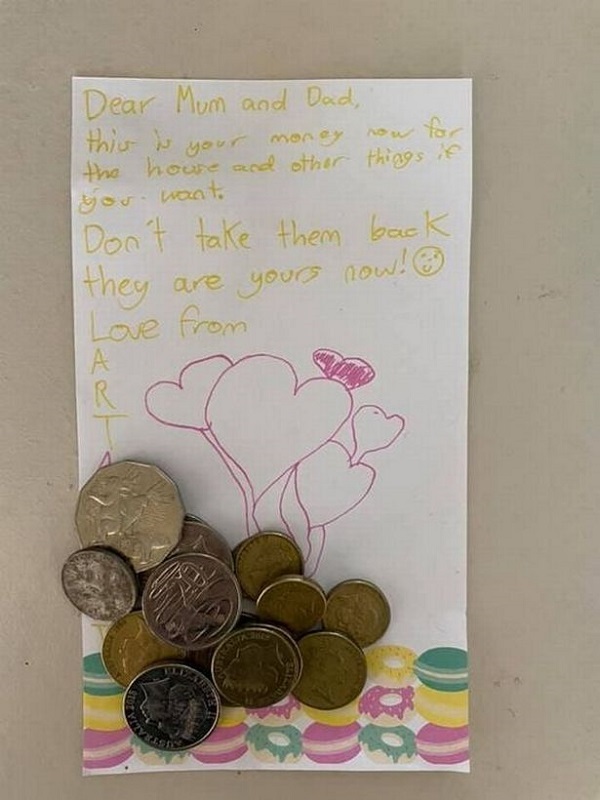 Dear Mum and Dad,
this is your money now for
the house and other things if
you want.
Don't take them back
they are yours now!
Love from
A
R
T
ELIZABETH
AUSTRALIA